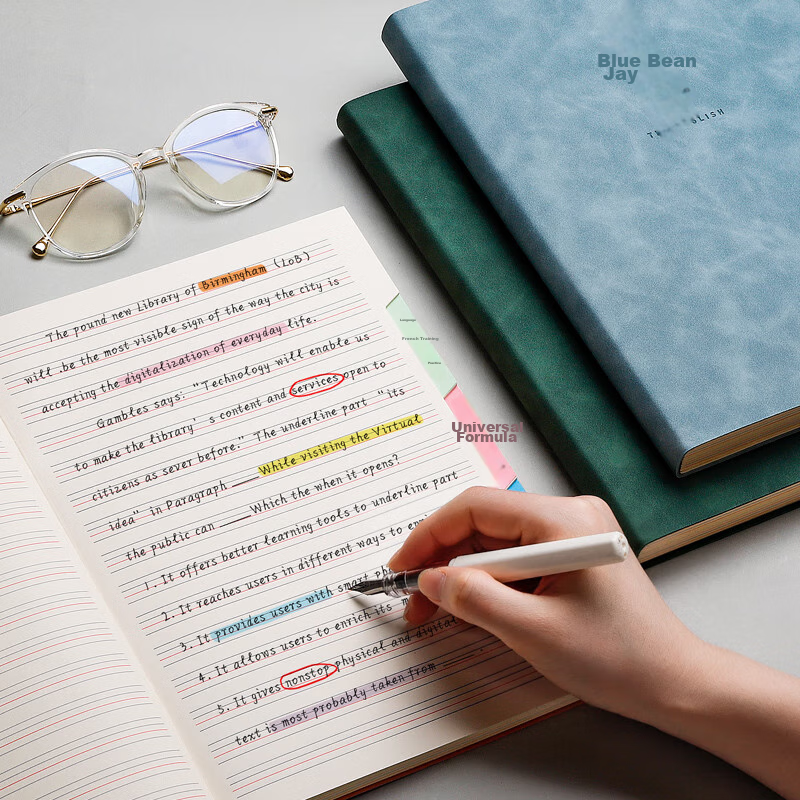 Blue Bean
Jay
The pound new Library of Birmingham (LoB)
will .be the most visible sign of the way the city is
accepting the digitalization of everyday life.
Gambles says: "Technology will enable us
to make the library' s content and services open to
citizens as sever before." The underline part "its
idea" in Paragraph ___ While visiting the Virtual
the public can ___ Which the when it opens?
1. It offers better learning tools to underline part
2. It reaches users in different ways to
3. It provides users with smart
4. It allows users to enrich its
5. It gives nonstop physical and digital
text is most probably taken from ___.
Language
French Training
Universal
Formula